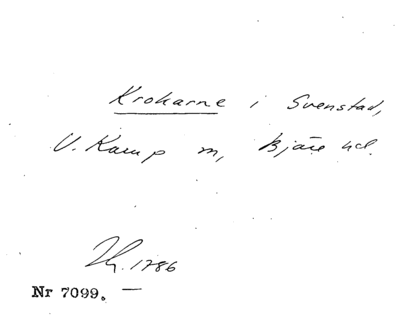 Krokarne i Svenstad,
V. Karup m, Bjäre hd.
Th. 1786
Nr 7099. —